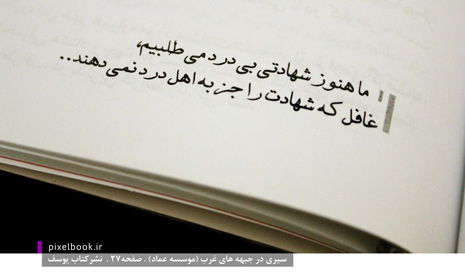 ما هنوز شهادتی بی درد می طلبیم،
غافل که شهادت را جز به اهل درد نمی دهند..
pixelbook.ir
سیری در جبهه های غرب (موسسه عماد) . صفحه۲۷ . نشرکتاب یوسف